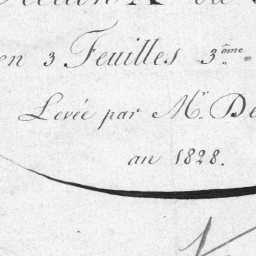 en 3 Feuilles 3.ème
Levée par Mr. De
an 1828.